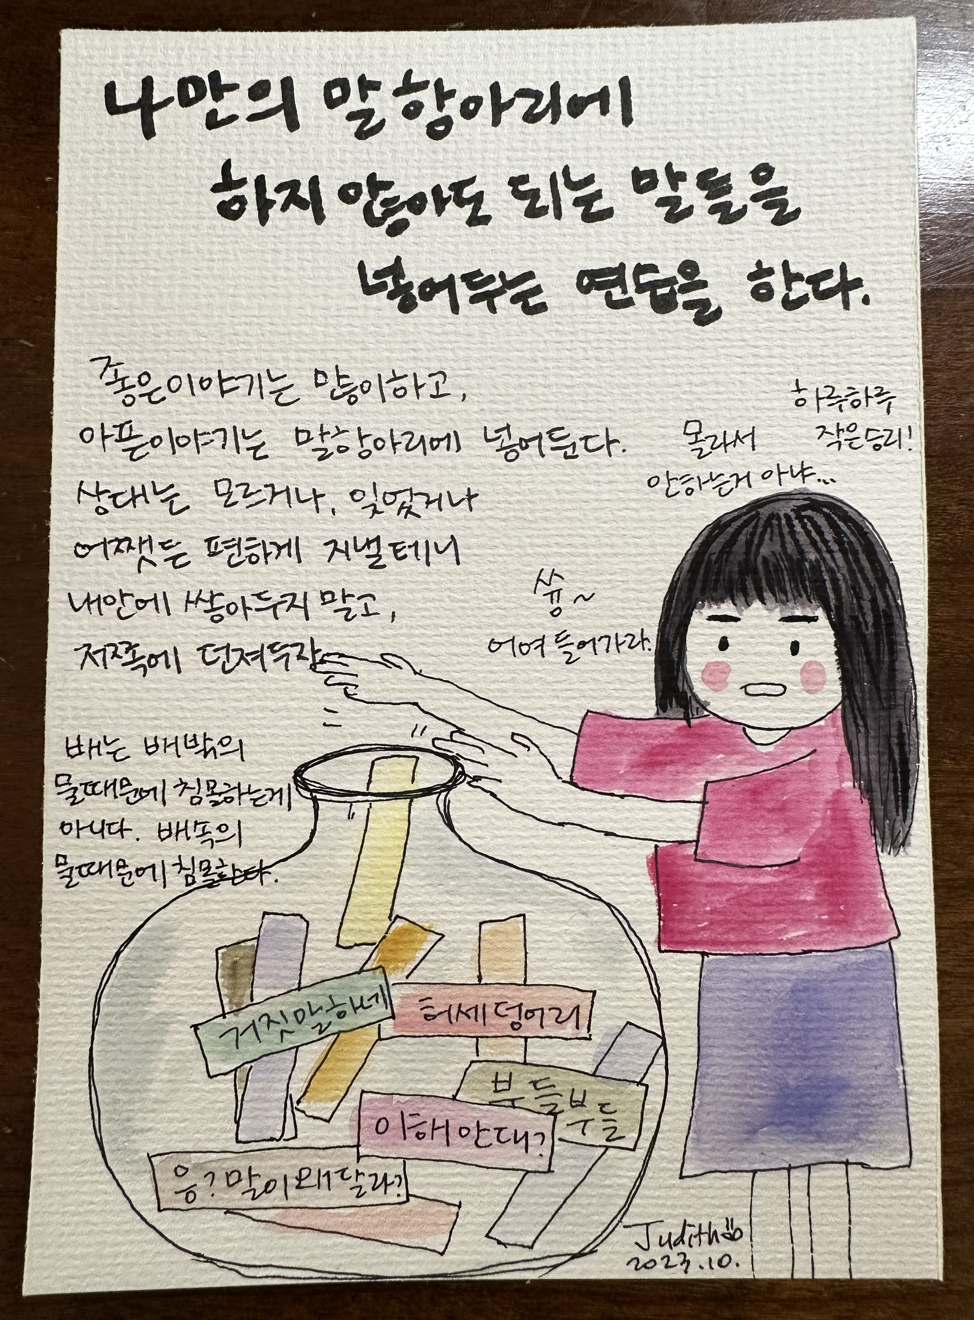 나만의 말항아리에
하지 않아도 되는 말들을
넣어두는 연습을 한다.
좋은이야기는 많이하고,
아픈이야기는 말항아리에 넣어둔다.
상대는 모르거나, 잊었거나
어쨋든 편하게 지낼테니
내안에 쌓아두지 말고,
저쪽에 던져두자
하루하루
작은승리!
몰라서
안하는거 아냐...
쓩~
어여 들어가라.
배는 배밖의
물때문에 침몰하는게
아니다. 배속의
물때문에 침몰한다.
거짓말하네
허세덩어리
부들부들
이해안대?
응? 말이왜달라?
Judith
2023.10.